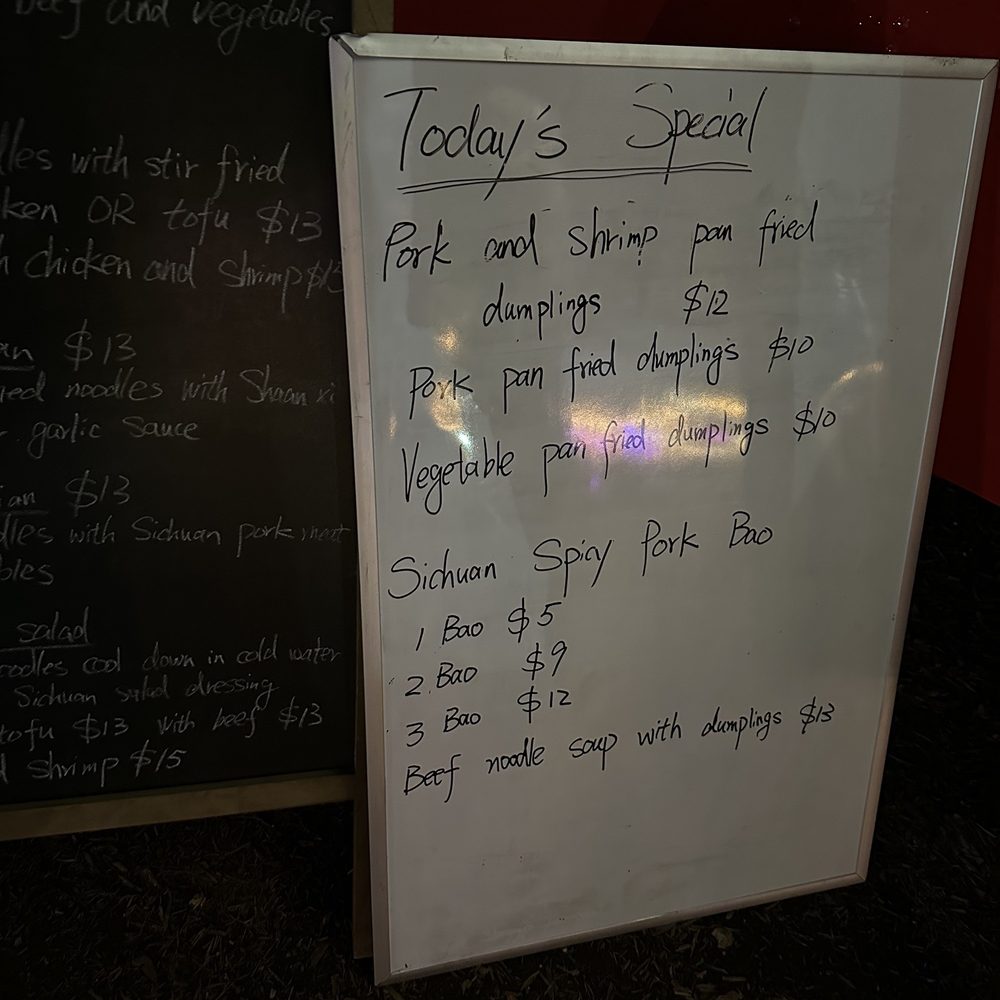 Beef and vegetables
with stir fried
OR tofu $13
chicken and shrimp
$13
noodles with Shaanxi
garlic sauce
$13
with Sichuan pork meat
salad
noodles cool down in cold water
Sichuan salad dressing
tofu $13 with beef $13
shrimp $15
Today's Special
Pork and shrimp pan fried
dumplings $12
Pork pan fried dumplings $10
Vegetable pan fried dumplings $10
Sichuan Spicy Pork Bao
1 Bao $5
2 Bao $9
3 Bao $12
Beef noodle soup with dumplings $13